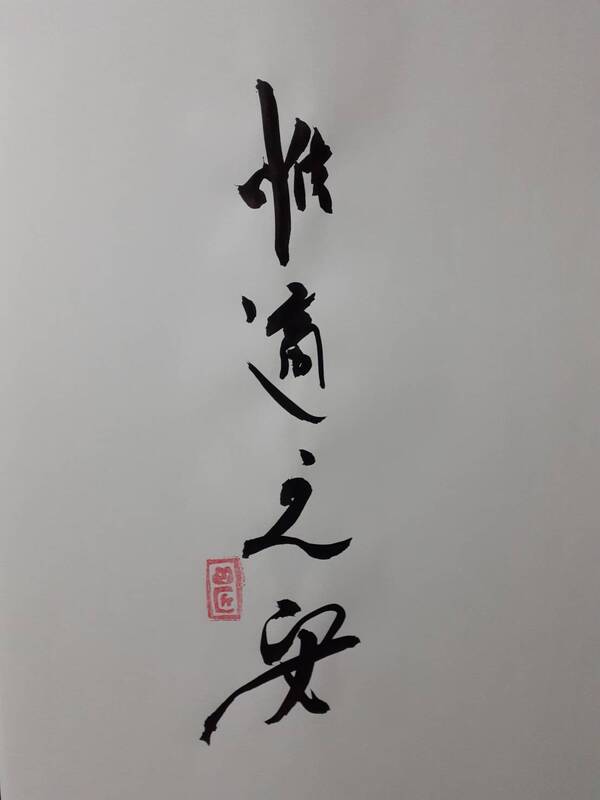 惟適之安